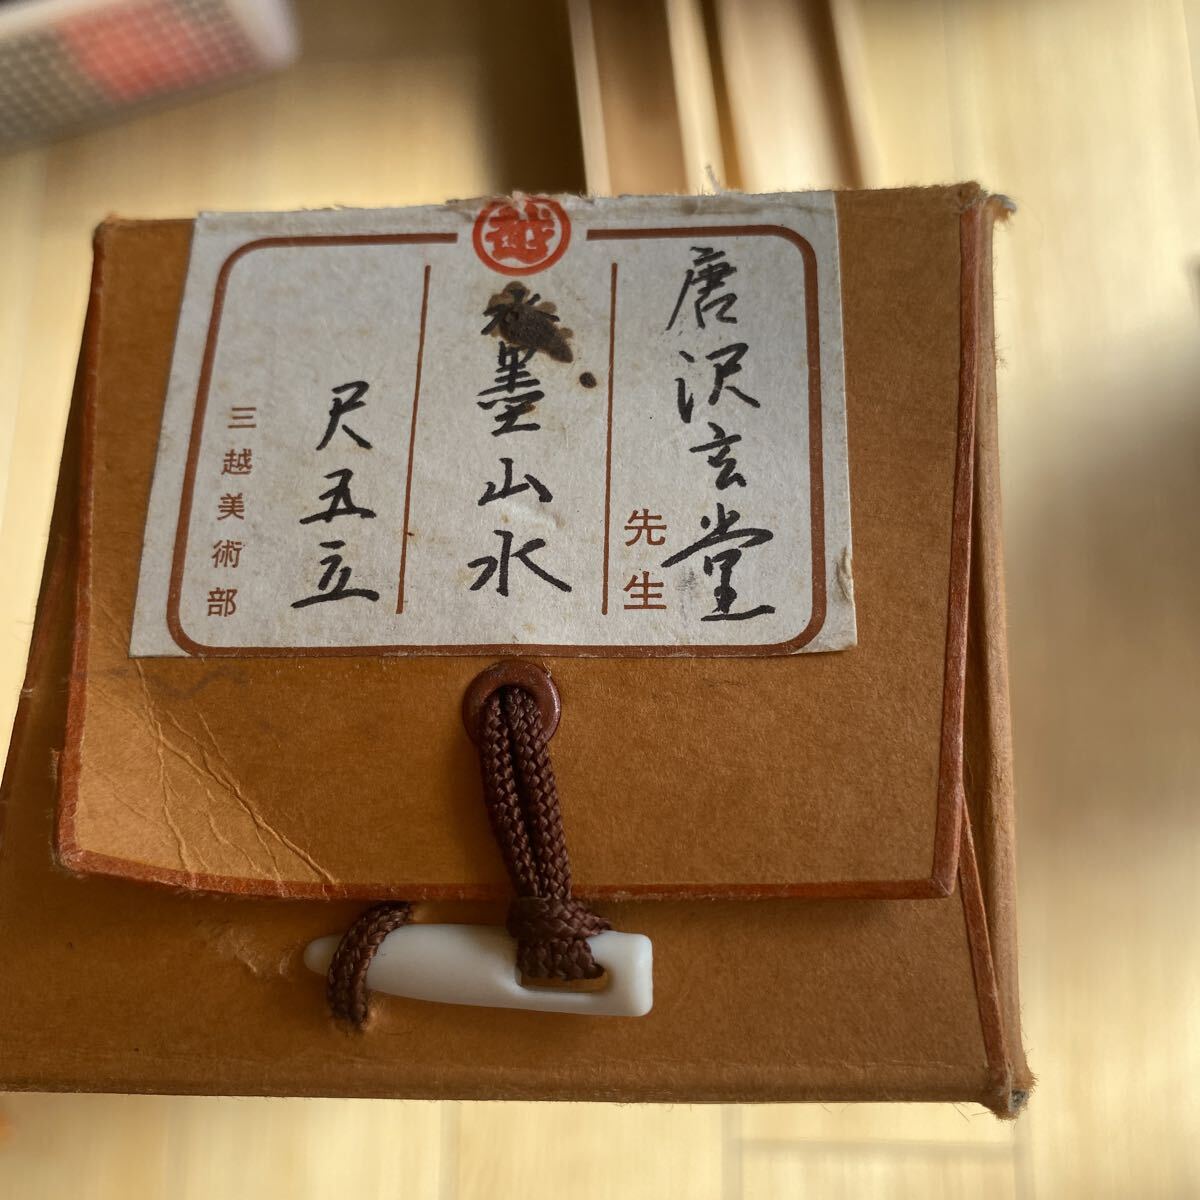 越
唐沢玄堂
先生
水墨山水
尺五立
三越美術部